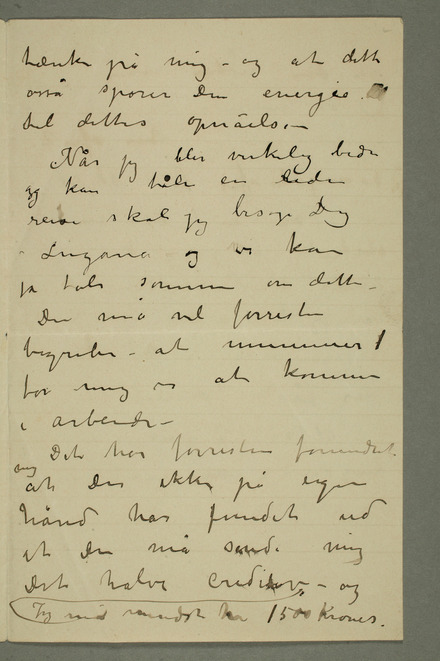 tænke på mig – og at dette
også sporer Din energie
til dettes opnåelse –
Når jeg blir virkelig bedre
og kan tåle en liden
reise skal jeg besøge Dig
i Lugano og vi kan
ja tale sammen om dette –
Du må vel forresten
begribe – at nummmer 1
for mig er at komme
i arbeide –
Det har forresten forundret
mig
at Du ikke på egen
hånd har fundet ud
at Du må sende mig
Det halve – og
Jeg må mindst ha 1500 Kroner.